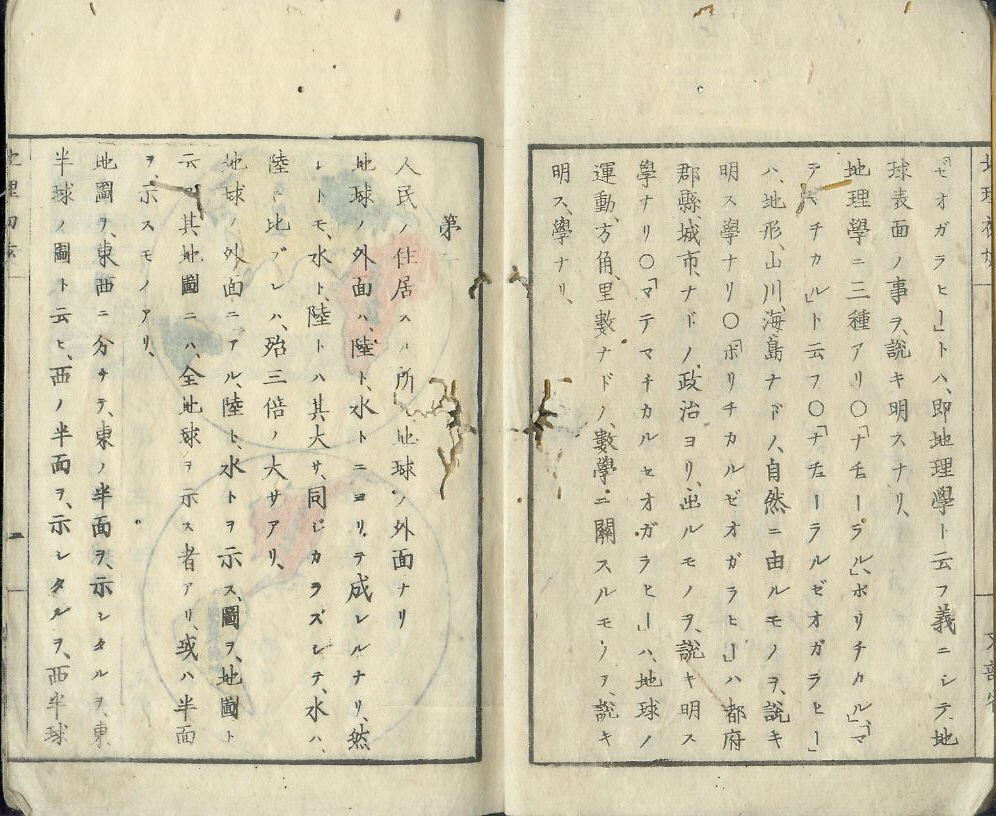 「ゼオガラヒー」トハ、即地理學ト云フ義ニシテ、地
球表面ノ事ヲ、說キ明スナリ、
地理學ニ三種アリ〇「ナチューラル」、「ポリチカル」、「マ
テマチカル」ト云フ〇「ナチューラルゼオガラヒー」
ハ、地形、山川、海島ナドノ、自然ニ由ルモノヲ、說キ
明ス學ナリ〇「ポリチカルゼオガラヒー」ハ都府
郡縣城市、ナドノ、政治ヨリ、出ルモノヲ、說キ明ス
學ナリ〇「マテマチカルゼオガラヒー」ハ、地球ノ
運動、方角、里數ナドノ、數學ニ關スルモノヲ、說キ
明ス、學ナリ、
文部省
第
人民ノ住居スル所ハ、地球ノ外面ナリ
地球ノ外面ハ、陸ト、水トニヨリテ成レルナリ、然
レトモ、水ト、陸トハ其大サ、同ジカラズシテ、水ハ、
陸ニ比ブレハ、殆三倍ノ大サアリ、
地球ノ外面ニアル、陸ト、水トヲ示ス、圖ヲ、地圖ト
云フ其地圖ニハ、全地球ヲ示ス者アリ、或ハ半面
ヲ、示スモノアリ、
地圖ヲ、東西ニ分チテ、東ノ半面ヲ、示シタルヲ、東
半球ノ圖ト云ヒ、西ノ半面ヲ、示シタルヲ、西半球
二